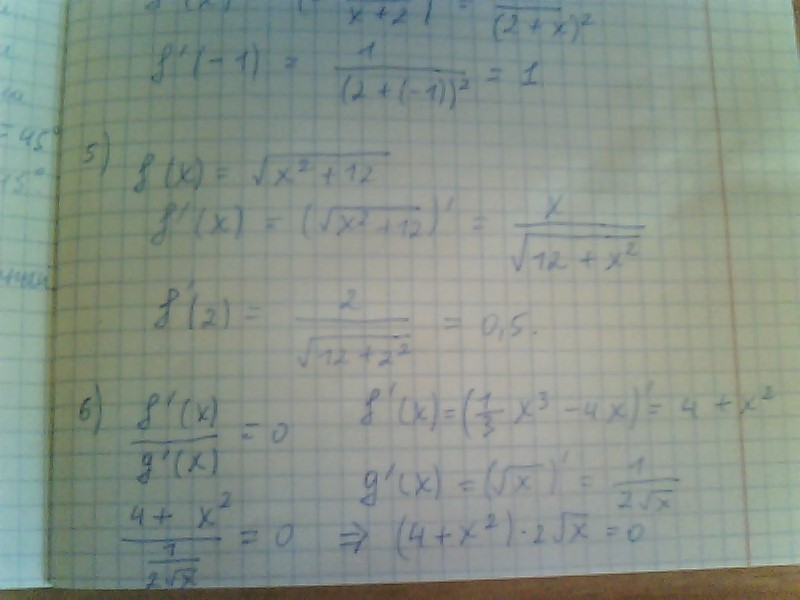 x+2 ) = (2+x)²
f'(-1) = 1/(2+(-1))² = 1
= 45°
5) f(x) = √(x²+12)
f'(x) = (√(x²+12))' = x/√(12+x²)
f'(2) = 2/√(12+2²) = 0,5.
6) f'(x)/g'(x) = 0 f'(x) = (1/3 x³ - 4x)' = 4 + x²
g'(x) = (√x)' = 1/(2√x)
(4 + x²)/(1/(2√x)) = 0 ⇒ (4+x²)·2√x = 0